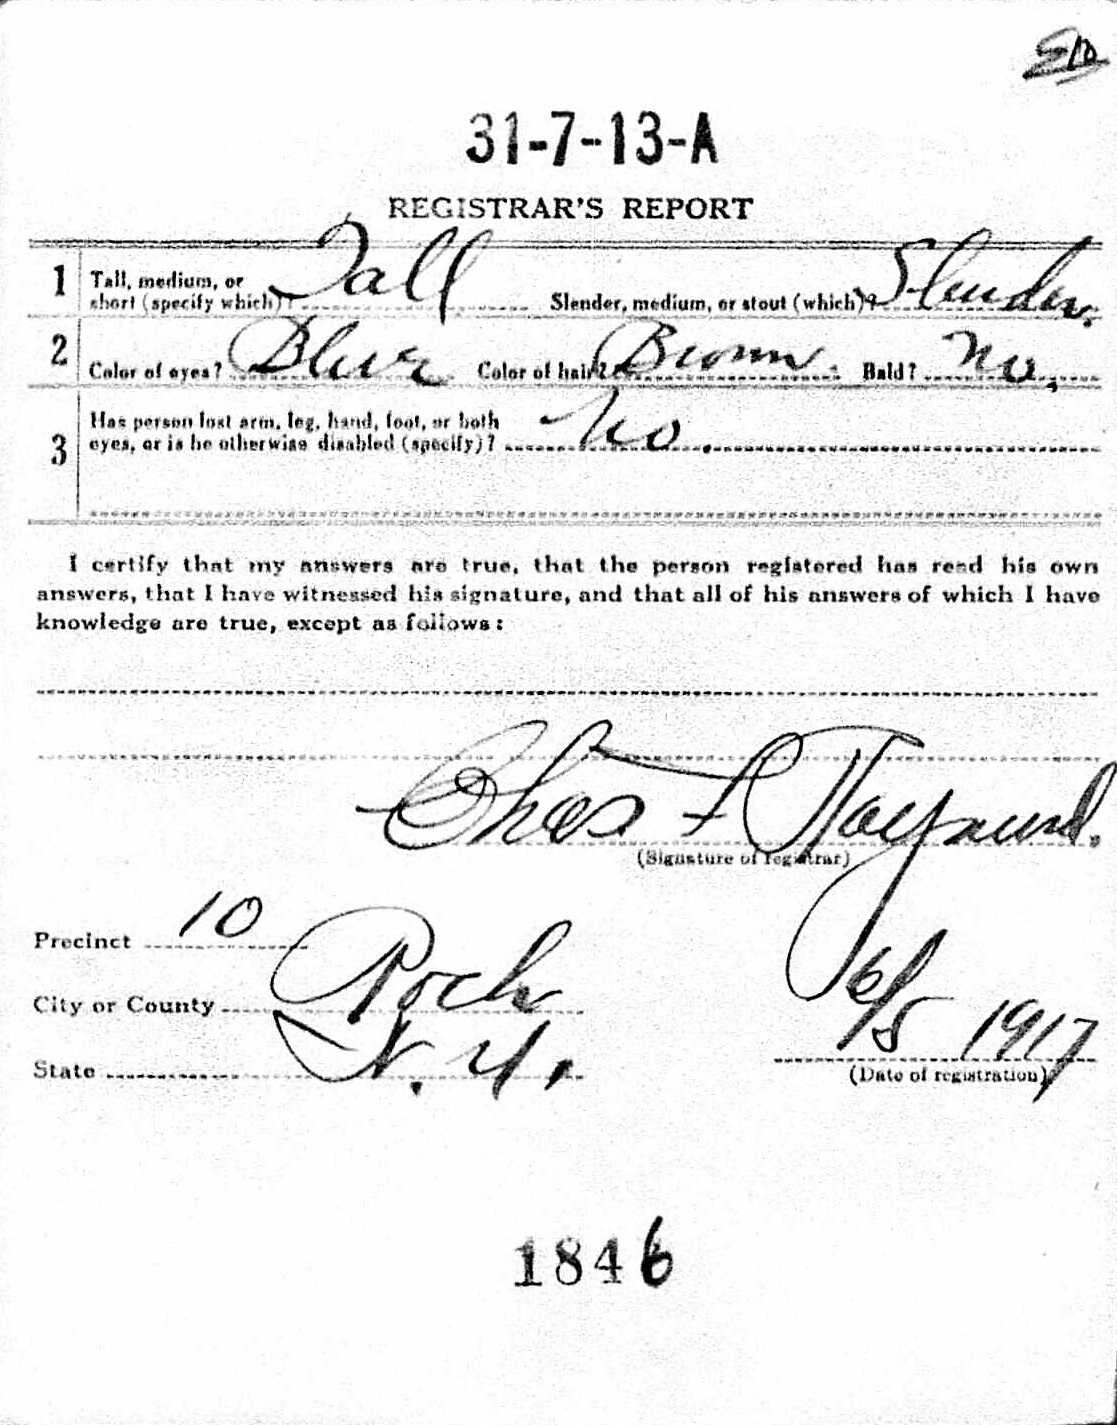 31-7-13-A
REGISTRAR'S REPORT
1 Tall, medium, or short (specify which)? Tall Slender, medium, or stout (which)? Slender.
2 Color of eyes? Blue Color of hair? Brown. Bald? No.
3 Has person lost arm, leg, hand, foot, or both
eyes, or is he otherwise disabled (specify)? No.
I certify that my answers are true, that the person registered has read his own
answers, that I have witnessed his signature, and that all of his answers of which I have
knowledge are true, except as follows:
Chas F
(Signature of registrar)
Precinct 10
City or County Roch
6/5 1917
State N.Y.
(Date of registration)
1846